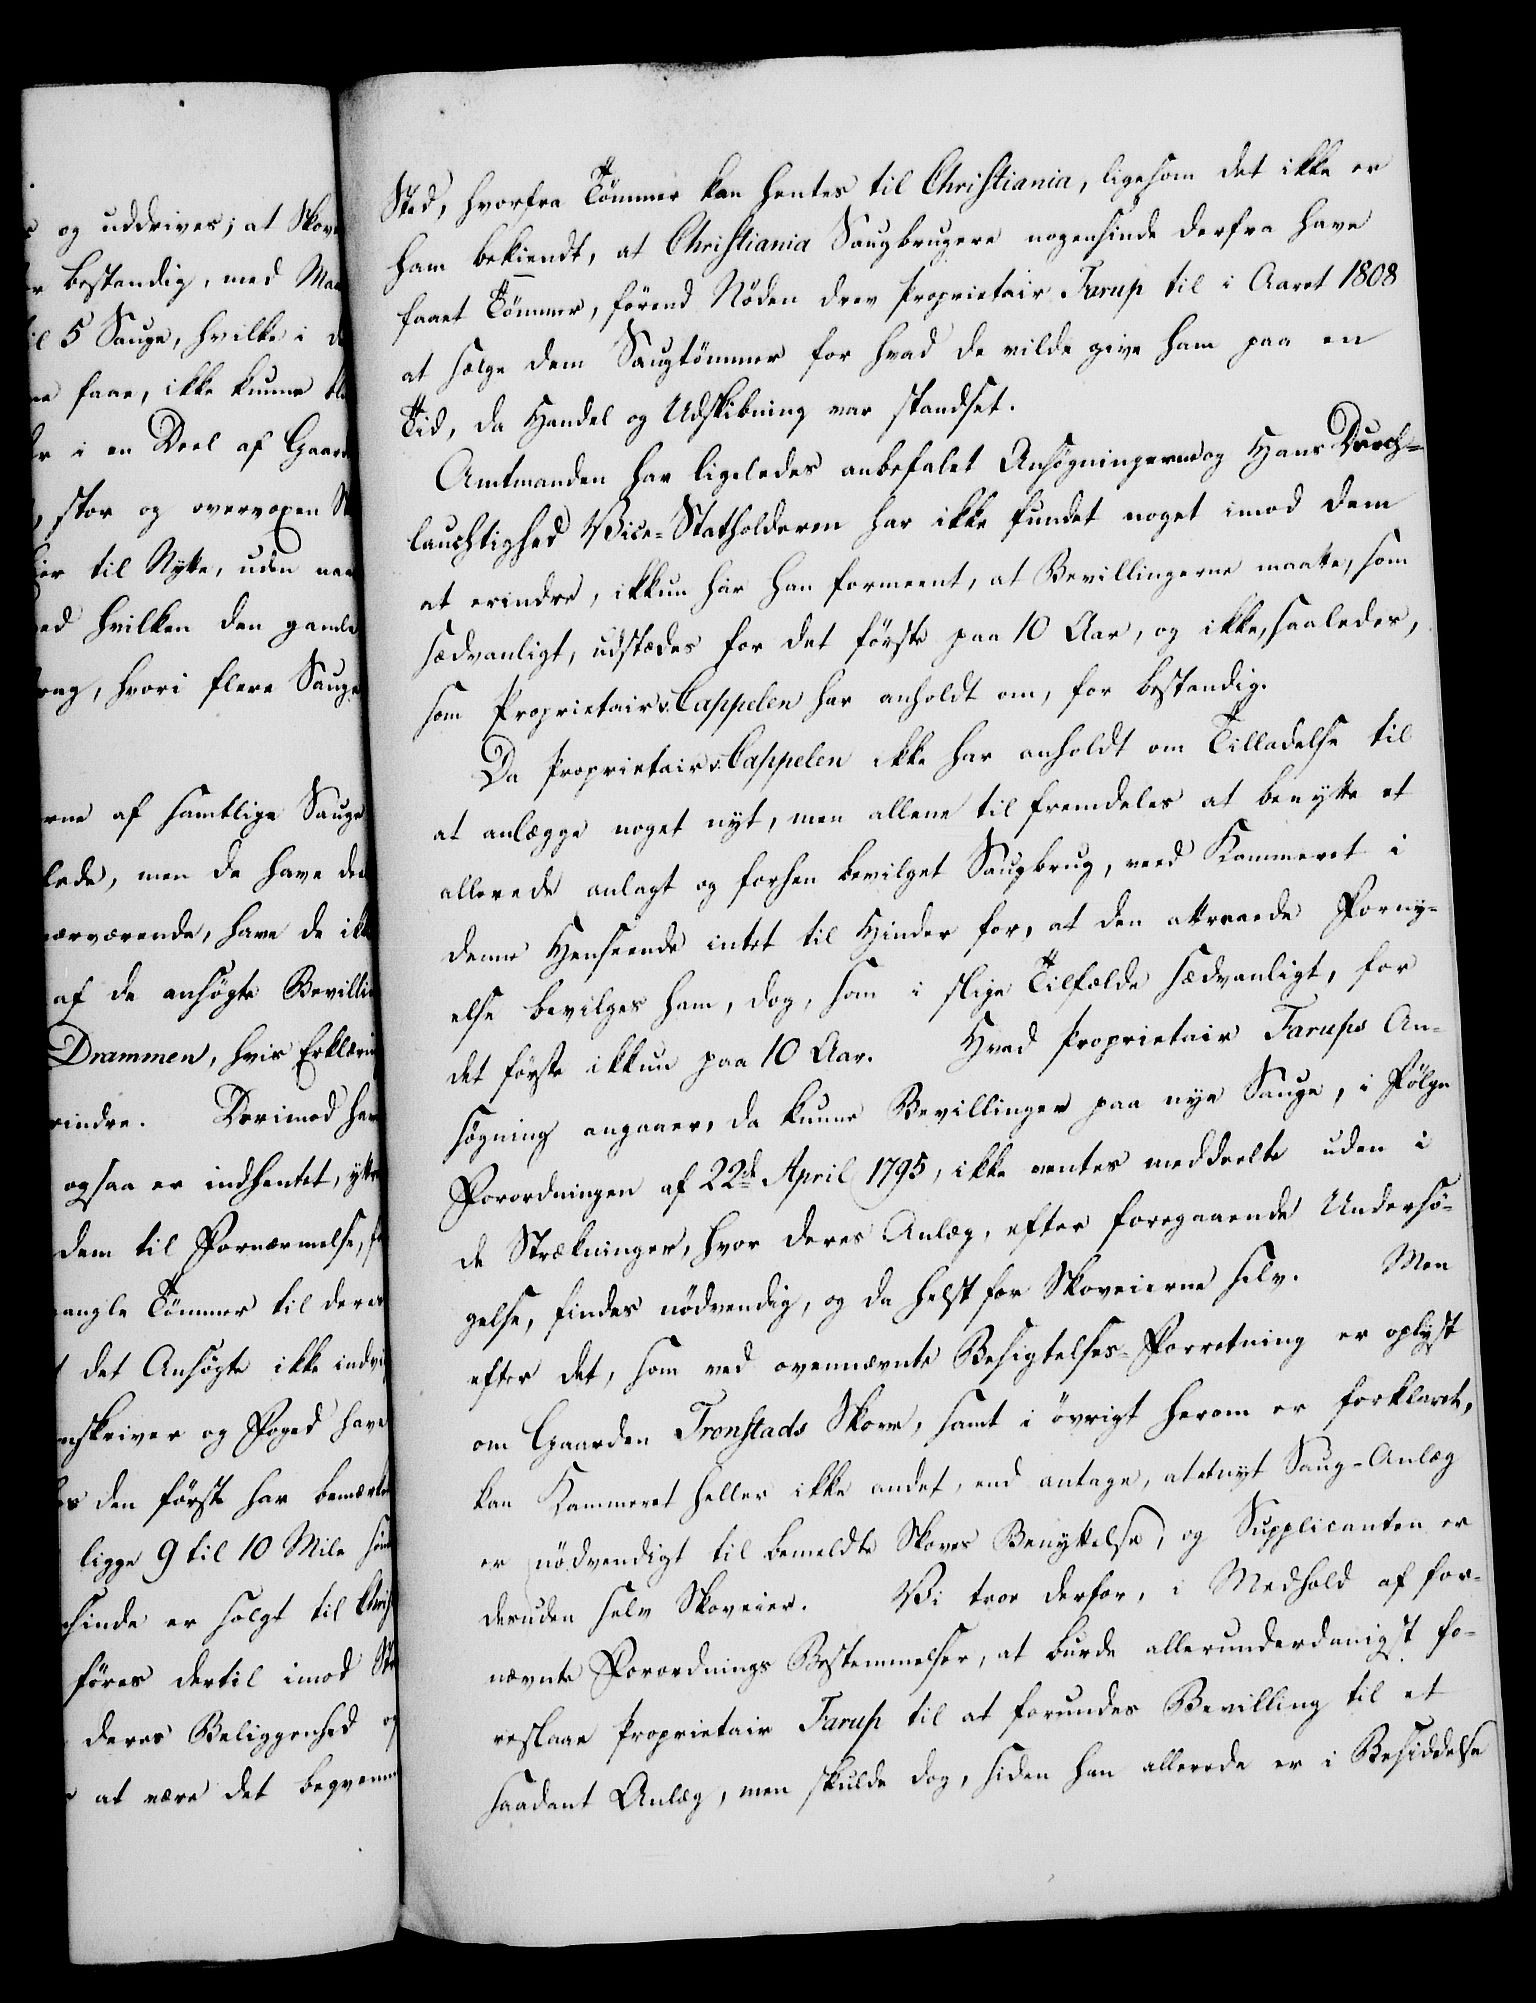 og uddrives; at Skov
bestandig, med Ma
til 5 Sauge, hvilke i d
faae, ikke kunne bl
i en Deel af Gaard
stor og overvoxen Sk
til Nytte, uden naa
ved hvilken den gamle
brug, hvori flere Sauge
erne af samtlige Sauge
lede, men de have de
nærværende, have de ikke
af de ansøgte Bevilli
Drammen, hvis Erklæring
erindre. Derimod have
ogsaa er indhentet, yttr
dem til Fornærmelse, f
mangle Tømmer til deres
det Ansøgte ikke indvi
nskriver og Foged have
den første har bemærket
ligge 9 til 10 Mile
sinde er solgt til Christ
føres dertil imod Str
deres Beliggenhed og
at være det beqvemme
Sted, hvorfra Tømmer kan hentes til Christiania, ligesom det ikke er
ham bekiendt, at Christiania Saugbrugere nogensinde derfra have
faaet Tømmer, førend Nøden drev Proprietair Tarup til i Aaret 1808
at sælge dem Saugtømmer for hvad de vilde give ham paa en
Tid, da Handel og Udskibning var standset.
Amtmanden har ligeledes anbefalet Ansøgningerne og Hans Durch-
lauchtighed Vice-Statholderen har ikke fundet noget imod dem
at erindre, ikkun har han formeent, at Bevillingerne maatte, som
sædvanligt, udstædes for det første paa 10 Aar, og ikke, saaledes,
som Proprietair v. Cappelen har anholdt om, for bestandig.
Da Proprietair v. Cappelen ikke har anholdt om Tilladelse til
at anlægge noget nyt, men allene til fremdeles at benytte et
allerede anlagt og forhen bevilget Saugbrug, veed Kammeret i
denne Henseende intet til Hinder for, at den attraaede Forny-
else bevilges ham, dog, som i slige Tilfælde sædvanligt, for
det første ikkun paa 10 Aar. Hvad Proprietair Tarups An-
søgning angaaer, da kunne Bevillinger paa nye Sauge, i Følge
Forordningen af 22de April 1795, ikke ventes meddeelte uden i
de Strækninger, hvor deres Anlæg, efter foregaaende Undersø-
gelse, findes nødvendig, og da helst for Skoveierne selv. Men
efter det, som ved ovennævnte Besigtelses-Forretning er oplyst
om Gaarden Tronstads Skove, samt i øvrigt herom er forklaret,
kan Kammeret heller ikke andet, end antage, at et nyt Saug-Anlæg
er nødvendigt til bemeldte Skoves Benyttelse, og Supplicanten er
desuden selv Skoveier. Vi troe derfor, i Medhold af for-
nævnte Forordnings Bestemmelser, at burde allerunderdanigst fo-
reslaae Proprietair Tarup til at forundes Bevilling til et
saadant Anlæg, men skulde dog, siden han allerede er i Besiddelse